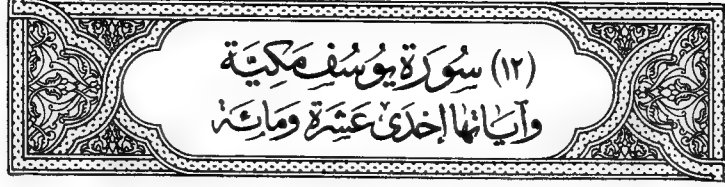 (١٢) سُورَة يُوسُف مَكِيَّة
وَآيَاتُهَا إِحْدَى عَشِرَة وَمَائَة